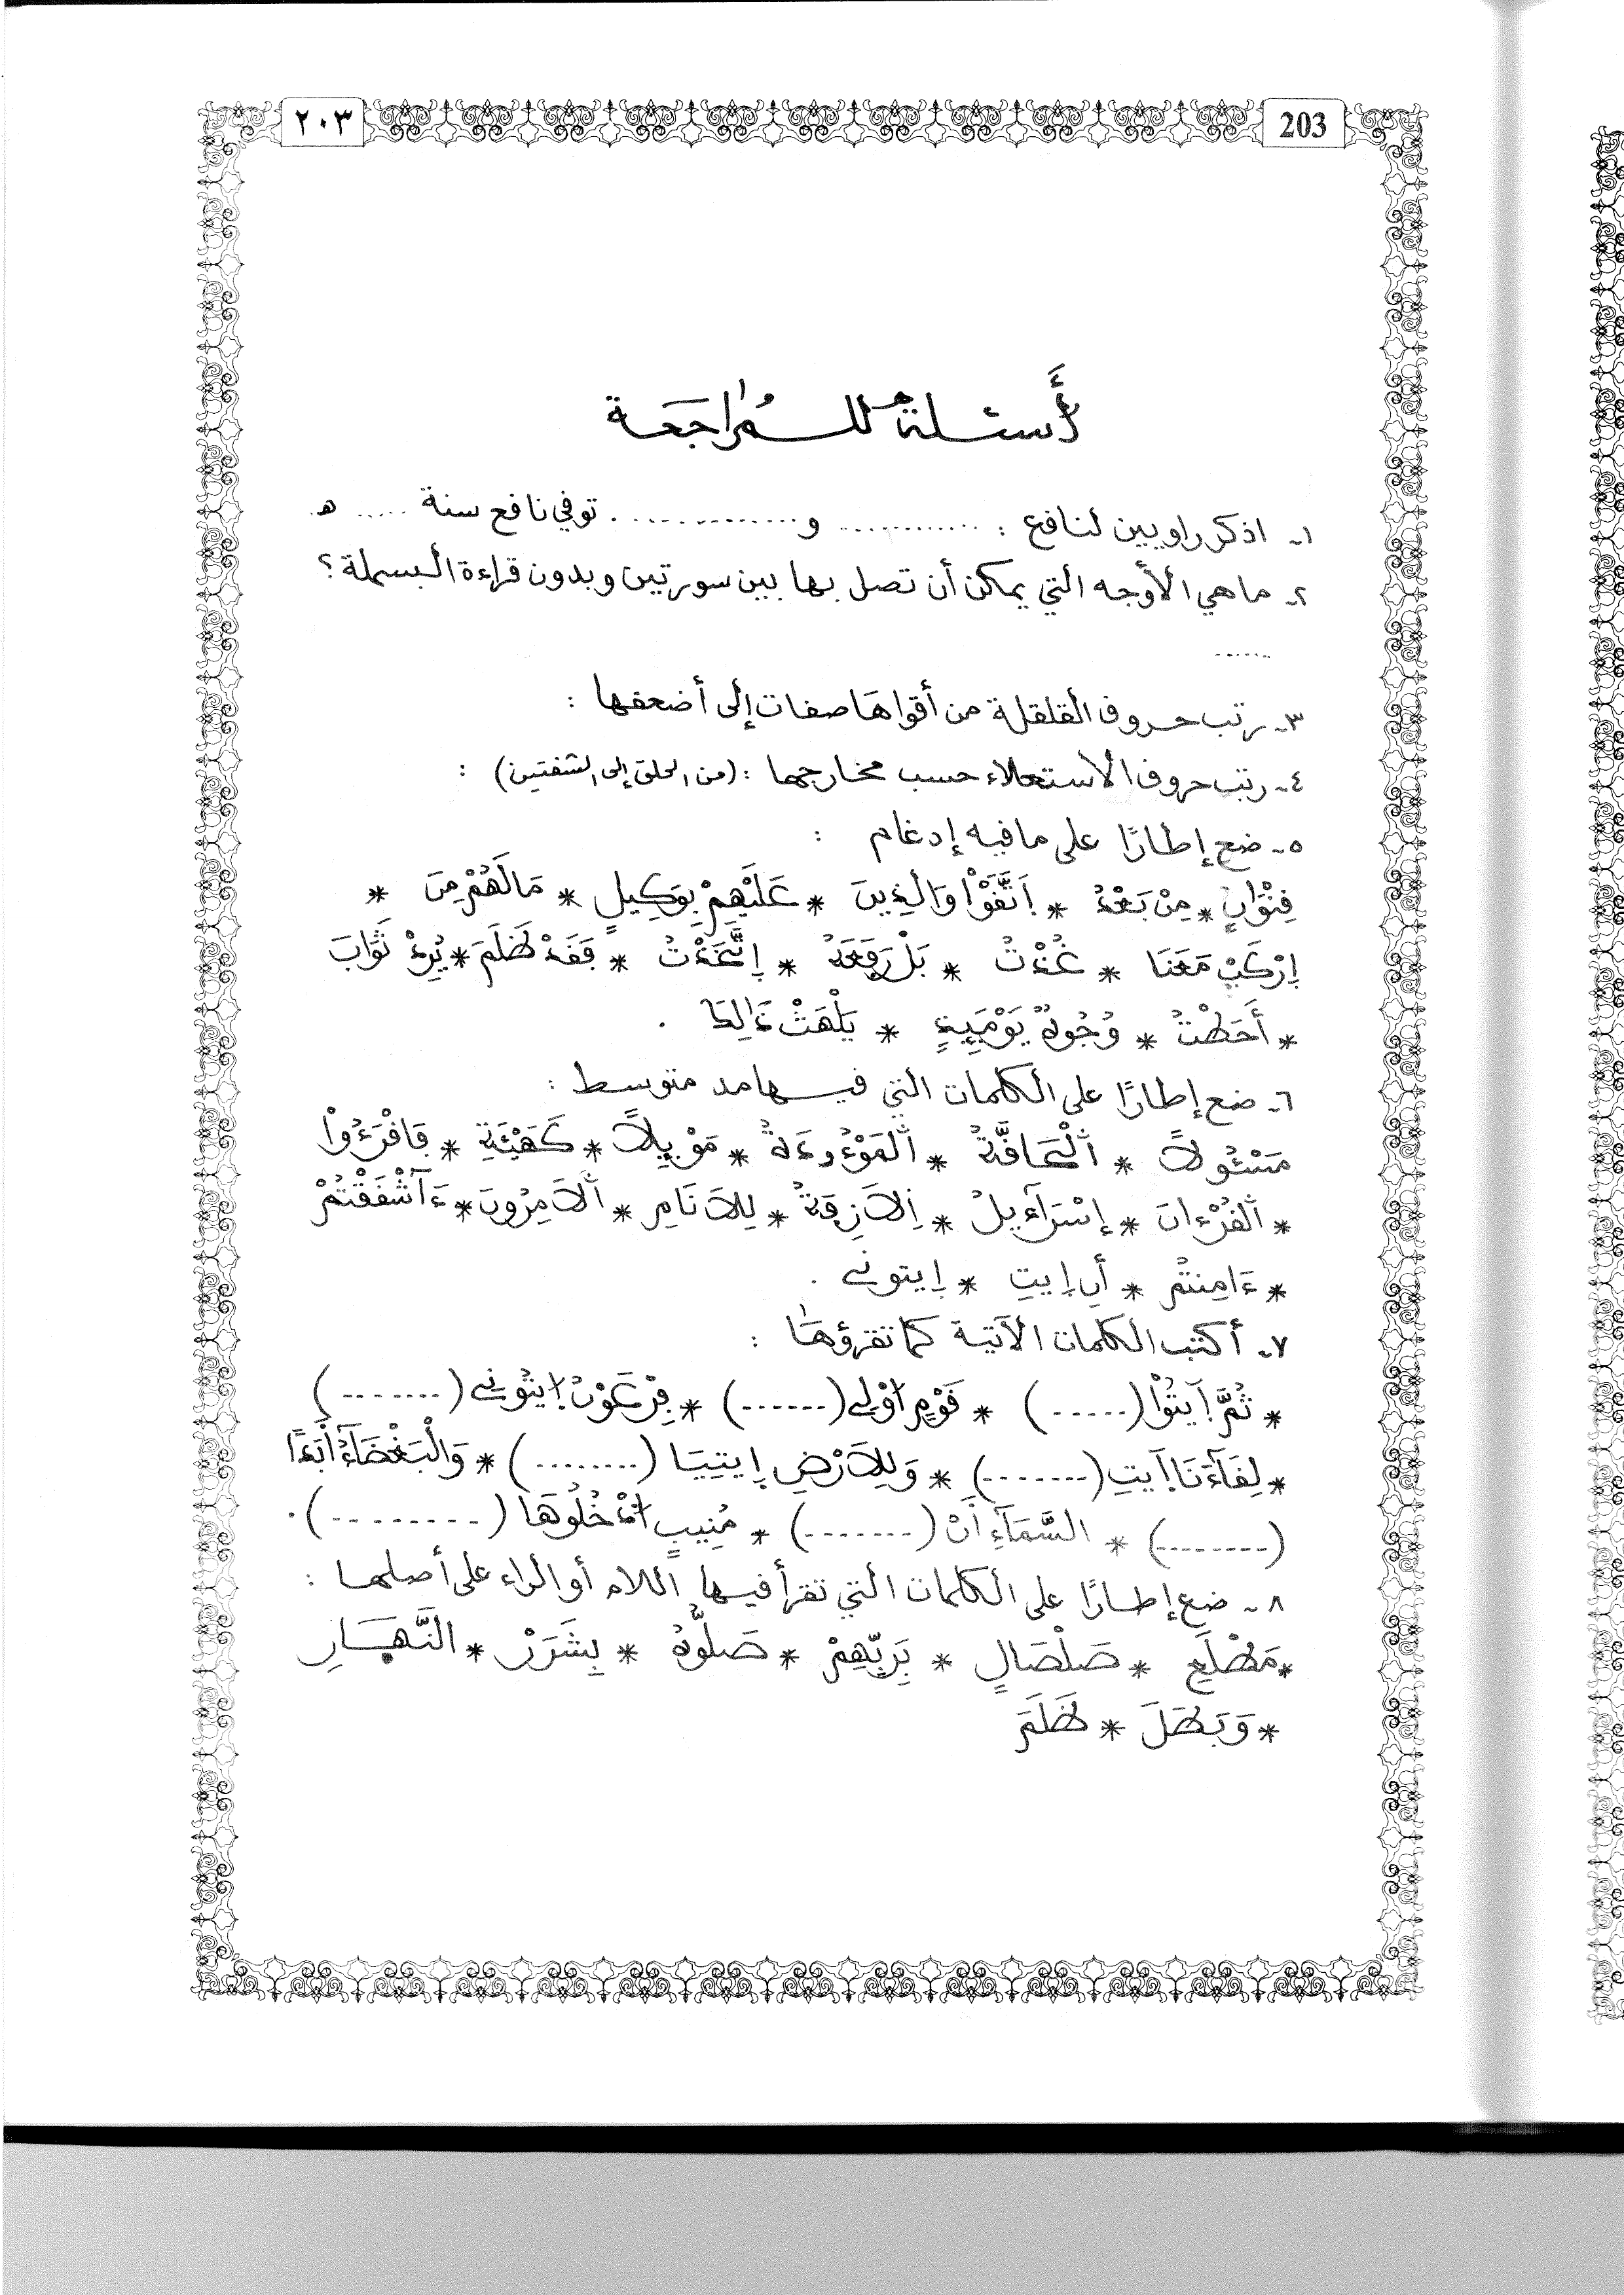 ٢٠٣
203
أَسئلة للمُراجَعَة
١- اذكر راويين لنافع : ............ و .............. توفي نافع سنة ..... ه
٢- ما هي الأوجه التي يمكن أن تصل بها بين سورتين وبدون قراءة البسملة ؟
......
٣- رتب حروف القلقلة من أقواها صفات إلى أضعفها :
٤- رتب حروف الاستعلاء حسب مخارجها : (من الحلق إلى الشفتين) :
٥- ضع إطارًا على ما فيه إدغام :
قِنْوَانٍ * مِنْ بَعْدُ * اِتَّقَوْا وَالَّذِينَ * عَلَيْهِمْ بِوَكِيلٍ * مَا لَهُمْ مِنَ *
اِرْكَبْ مَعَنَا * عُذْتُ * بَلْ رَفَعَهُ * إِتَّخَذْتُ * فَقَدْ ظَلَمَ * يُرِدْ ثَوَابَ
* أَحَطْتُ * وُجُوهٌ يَوْمَئِذٍ * يَلْهَثْ ذَالِكَ .
٦- ضع إطارًا على الكلمات التي فيها مد متوسط :
مَسْئُولاً * اَلْحَاقَّةُ * اَلْمَوْءُودَةُ * مَوْئِلاً * كَهَيْئَةِ * فَاقْرَءُواْ
* اَلْقُرْءَانَ * إِسْرَآءِيلَ * اِلَازِفَةُ * لِلَانَامِ * اَلَامِرُونَ * ءَآشْفَقْتُمْ
* ءَامِنتُم * أَنِ إِيتِ * إِيتونے .
٧- أكتب الكلمات الآتية كما تقرؤها :
* ثُمَّ اَيتُواْ (.....) * قَوْمٍ اوْلِے (......) * فِرْعَوْنُ اِيتُونِے (.......)
* لِقَآءَنَا اَيتِ (.......) * وَلِلَارْضِ إِيتِيَا (........) * وَالْبَغْضَآءُ اَبَدًا
(........) * السَّمَآءِ اَنْ (.......) * مُنِيبٍ ادْخُلُوهَا (.........) .
٨- ضع إطارًا على الكلمات التي تقرأ فيها اللام أو الراء على أصلها :
* مَطْلَعِ * صَلْصَالٍ * بِرَبِّهِمْ * صَلُّوهُ * بِشَرَرٍ * النَّهَارِ
* وَبَطَلَ * ظَلَمَ